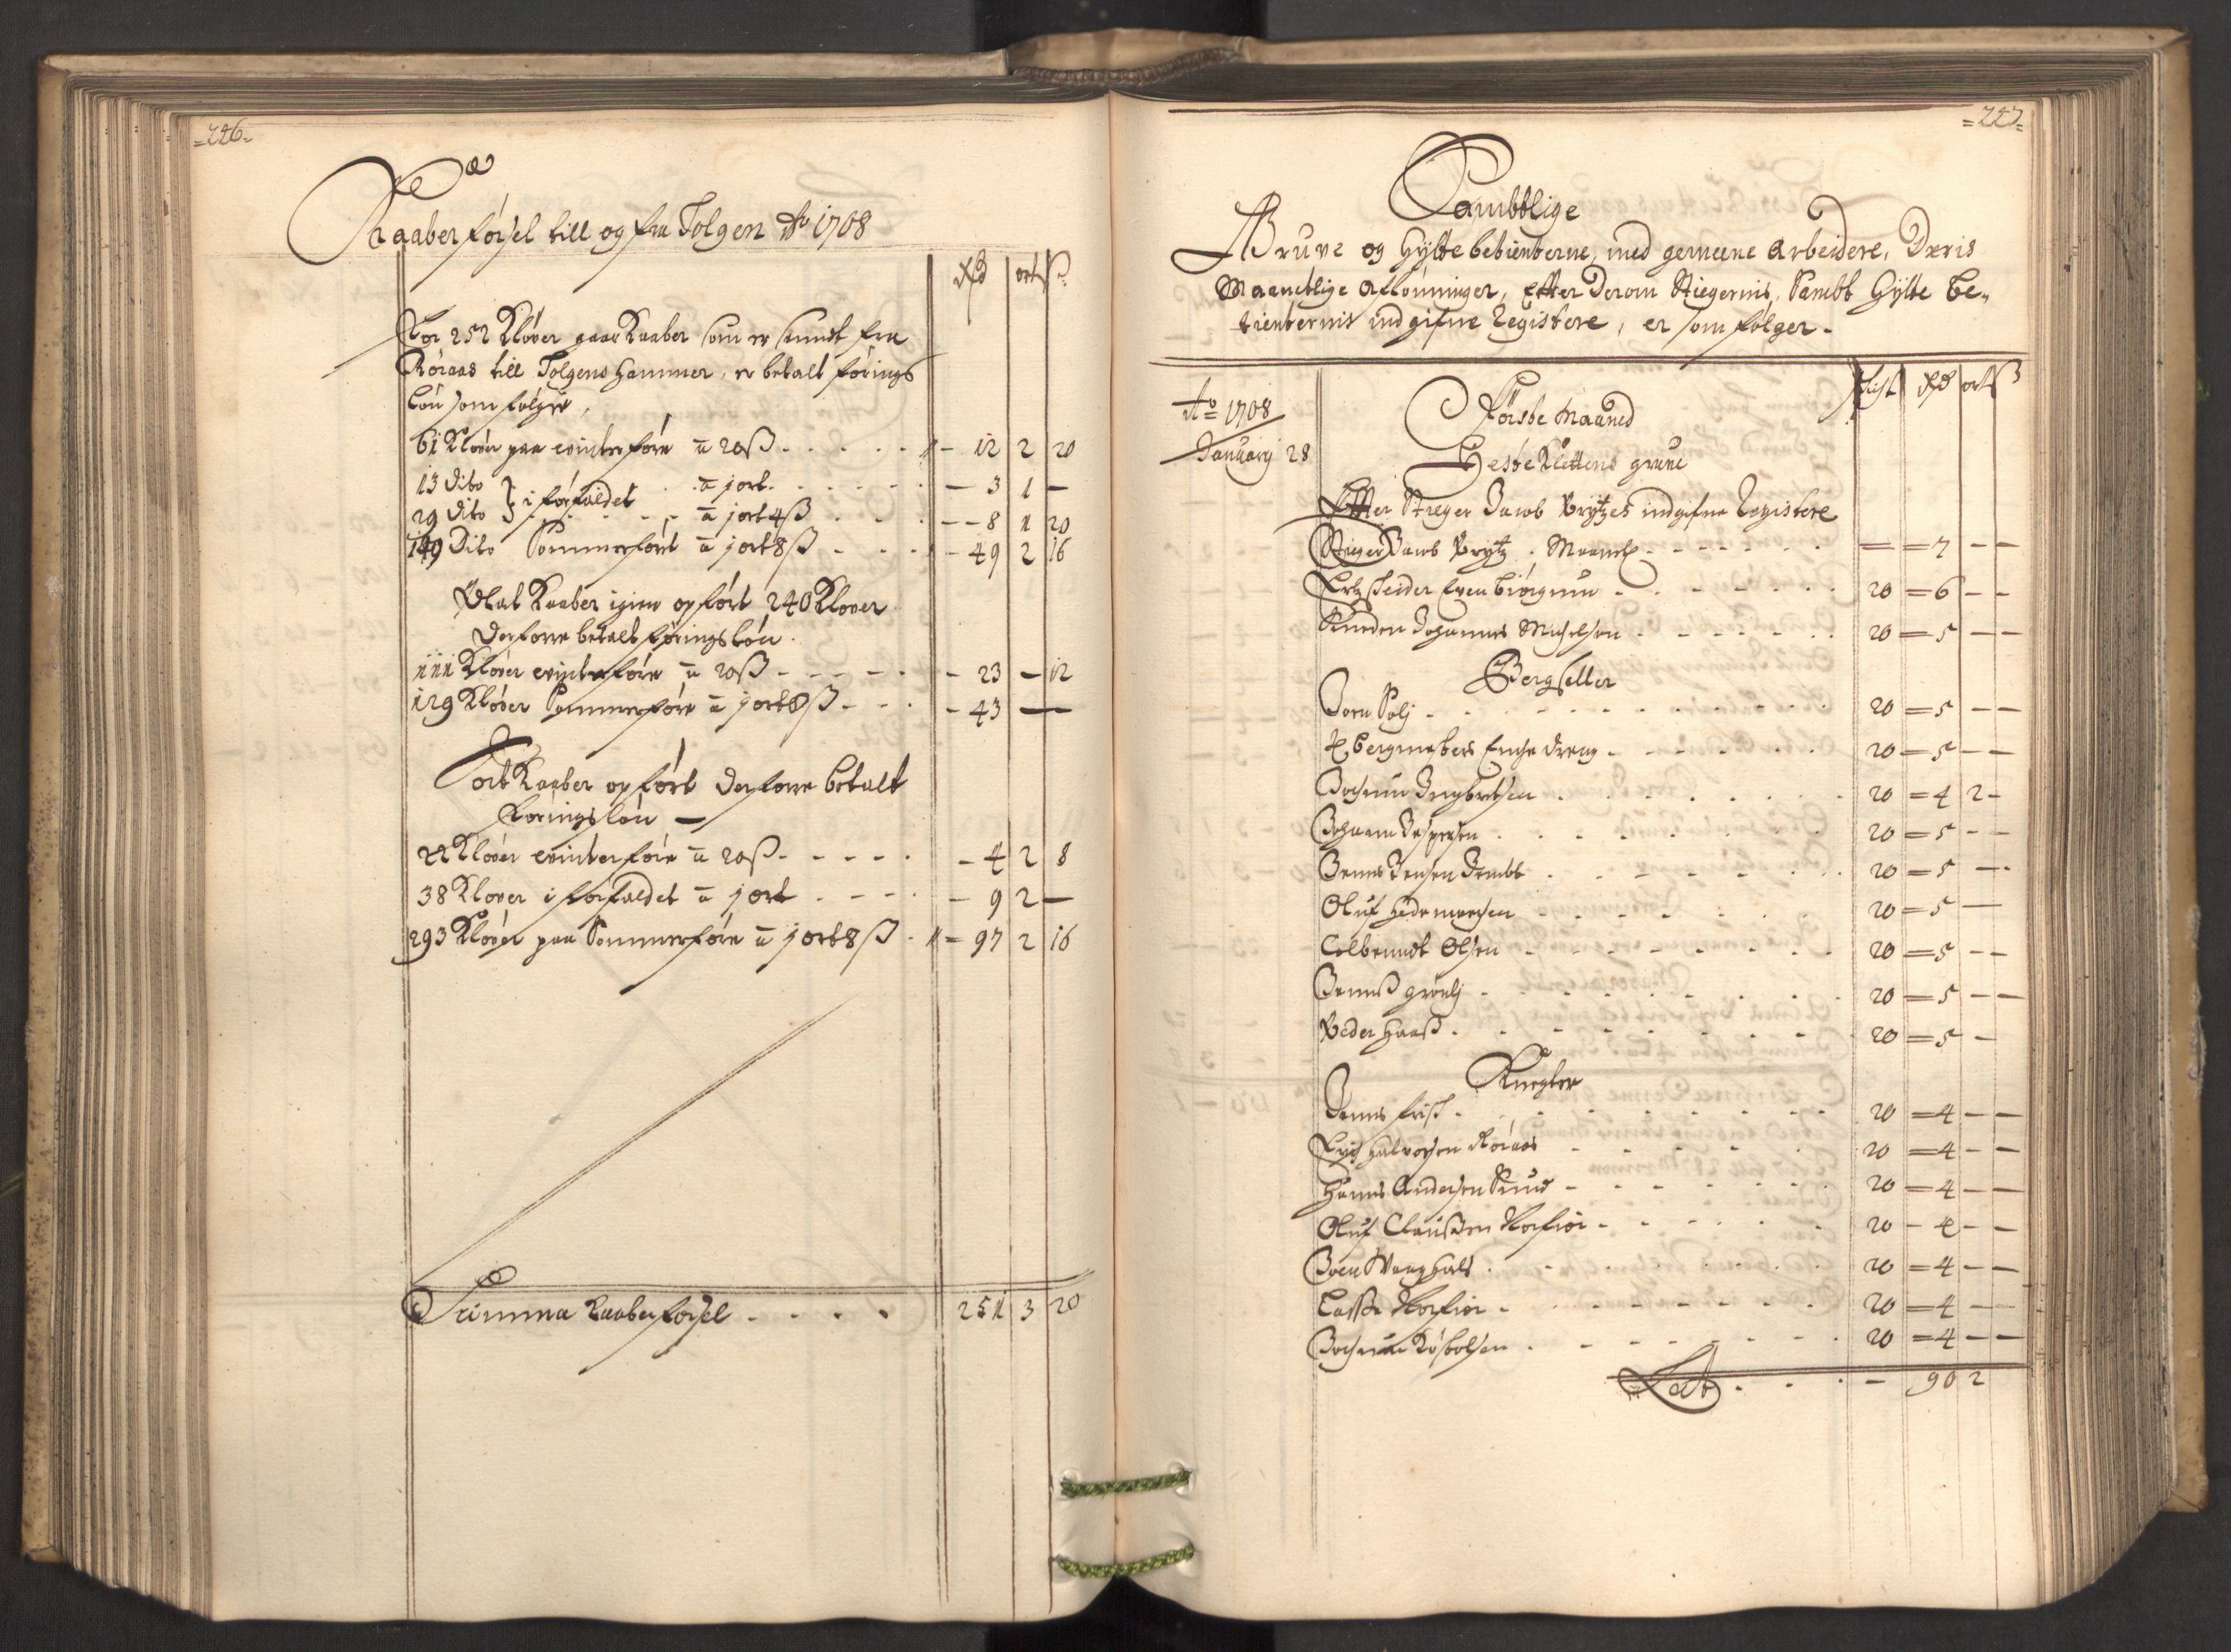 =226=
Kaaberførsel till og fra Tolgen Ao 1708
Rd ort ß
For 252 Kløver gaar Kaaber som er sendt fra
Røraas till Tolgens hammer, er betaltførings
løn som følger,
61 Kløver paa vinterføre a 20 ß - 12 2 20
13 Dito } i forfaldet a j ort - 3 1 -
29 Dito } a j ort 4 ß - 8 1 20
149 Dito Sommerført a j ort 8 ß - 49 2 16
Kaaber igien opført 240 Klover
Derforre betalt føringsløn.
111 Kløver vinterføre a 20 ß - 23 - 12
129 Kløver Sommerføre a j ort 8 ß - 43 -
Sort Kaaber opført derforre betalt
føringsløn -
22 Kløver vinterføre a 20 ß - 4 2 8
38 Klover i forfaldet a j ort - 9 2 -
293 Kløver paa Sommerføre a j ort 8 ß - 97 2 16
Summa Kaaberførsel 251 3 20
=227=
Sambtlige
Gruve og Hytte betienterne, med gemeene arbeidere, Deris
Maanetlige afløninger, efter Derom Stiegernis, Sambt Hytte be-
tienternis indgifne Registere, er som følger.
Rd ort ß
Ao 1708
January 28
Første Maaned
HesteKlettens grue
Efter Stieger Jacob Brytzes indgifne Registere
Stieger Jacob Brytz - = 7 - -
Ertzscheider Even Biørgum - 20 = 6 - -
Johannes Michelsen - 20 = 5 - -
Bergseller
Joen Solj - 20 = 5 - -
bergmesters dreng - 20 = 5 - -
Jochum Ingbretsen 20 = 4 2 -
Johann Jespersen 20 = 5 - -
Jenns Jensen 20 = 5 - -
Oluf Hedemarchen 20 = 5 -
Colbrandt Olsen 20 = 5 - -
Jennß grønlj 20 = 5 - -
Peder Haaß 20 = 5 -
Knegter
Jenns frisch 20 = 4 - -
Erich Halvorsen Røraas 20 = 4 - -
Hanns Andersen 20 = 4 - -
Oluf Claussen 20 - 4 - -
Joen Vanghals 20 = 4 - -
Lasse 20 = 4 - -
Jochum 20 = 4 - -
Lat - 90 2